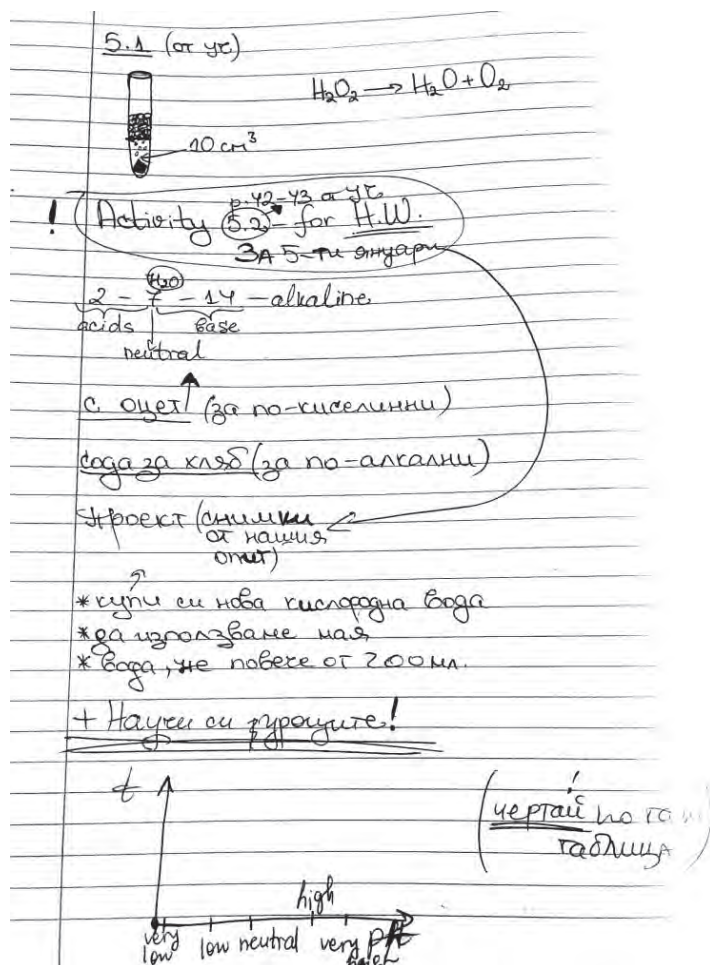 5.1 (от ук)
H₂O₂ → H₂O + O₂
10 cm³
p. 42-43 от ук
! Activity 5.2 - for H.W.
ЗА 5-ти януари
H₂O
2 - 7 - 14 - alkaline
acids base
neutral
с оцет (за по-киселинни)
сода за хляб (за по-алкални)
проект (снимки
от нашия
опит)
* купи си нова кислородна вода
* да използваме
* вода, не повече от 200 мл.
+ Научи си !
t
!
(чертай по
таблица)
high
very low low neutral very pH